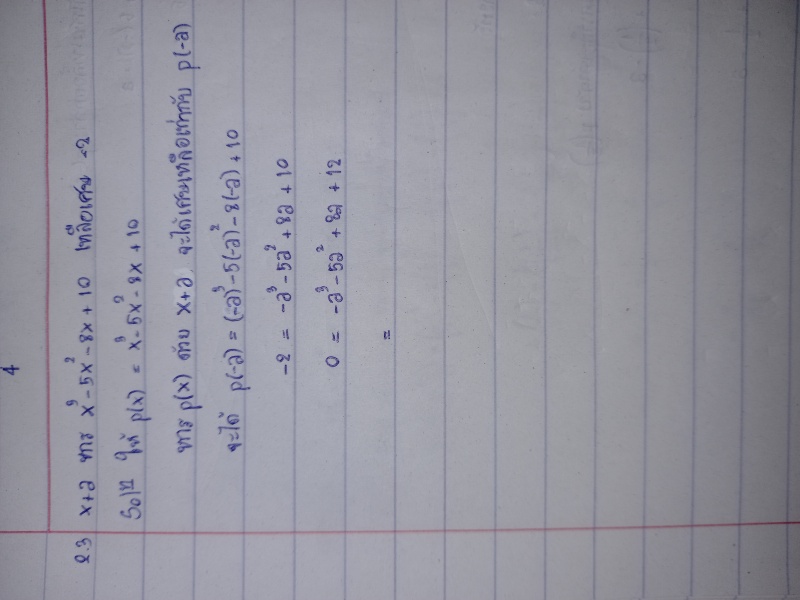 4
2.3 x+a หาร x³ - 5x² - 8x + 10 เหลือเศษ -2
Soln ให้ p(x) = x³ - 5x² - 8x + 10
หาร p(x) ด้วย x+a จะได้เศษเหลือเท่ากับ p(-a)
จะได้ p(-a) = (-a)³ - 5(-a)² - 8(-a) + 10
-2 = -a³ - 5a² + 8a + 10
0 = -a³ - 5a² + 8a + 12
=